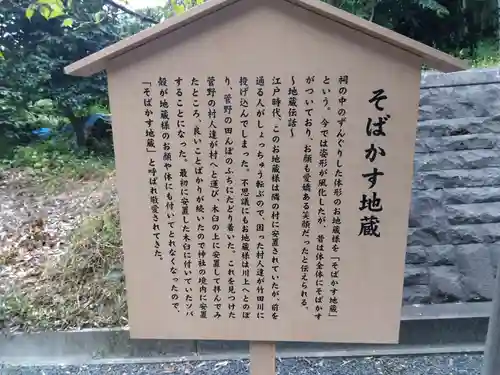 そばかす地蔵
祠の中のずんぐりした体形のお地蔵様を「そばかす地蔵」
という。今では姿形が風化したが、昔は体全体にそばかす
がついており、お顔も愛嬌ある笑顔だったと伝えられる。
〜地蔵伝話〜
江戸時代、このお地蔵様は隣の村に安置されていたが、前を
通る人がしょっちゅう転ぶので、困った村人達が竹田川に
投げ込んでしまった。不思議にもお地蔵様は川上へとのぼ
り、菅野の田んぼのふちにたどり着いた。これを見つけた
菅野の村人達が村へと運び、木臼の上に安置して拝んでみ
たところ、良いことばかりが続いたので神社の境内に安置
することになった。最初に安置した木臼に付いていたソバ
殻が地蔵様のお顔や体にも付いてとれなくなったので、
「そばかす地蔵」と呼ばれ敬愛されてきた。